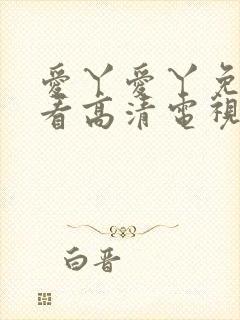 愛丫愛丫免
看高清電視
白晋